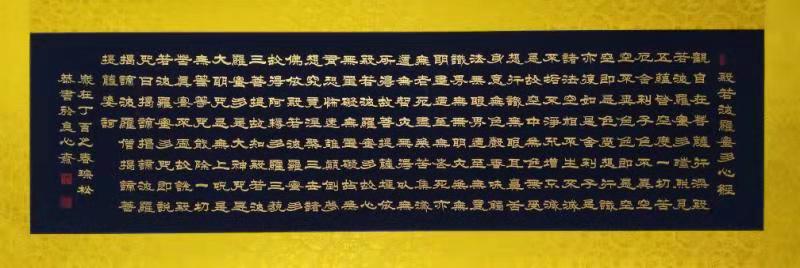 般若波羅蜜多心經
觀自在菩薩行深般
若波羅蜜多時照見
五蘊皆空度一切苦
厄舍利子色不異空
空不異色色即是空
空即是色受想行識
亦復如是舍利子是
諸法空相不生不滅
不垢不淨不增不減
是故空中無色無受
想行識無眼耳鼻舌
身意無色聲香味觸
法無眼界乃至無意
識界無無明亦無無
明盡乃至無老死亦
無老死盡無苦集滅
道無智亦無得以無
所得故菩提薩埵依
般若波羅蜜多故心
無罣礙無罣礙故無
有恐怖遠離顛倒夢
想究竟涅槃三世諸
佛依般若波羅蜜多
故得阿耨多羅三藐
三菩提故知般若波
羅蜜多是大神咒是
大明咒是無上咒是
無等等咒能除一切
苦真實不虛故說般
若波羅蜜多咒即說
咒曰揭諦揭諦波羅
揭諦波羅僧揭諦菩
提薩婆訶
歲在丁酉之春瑞松
恭書於良心齋